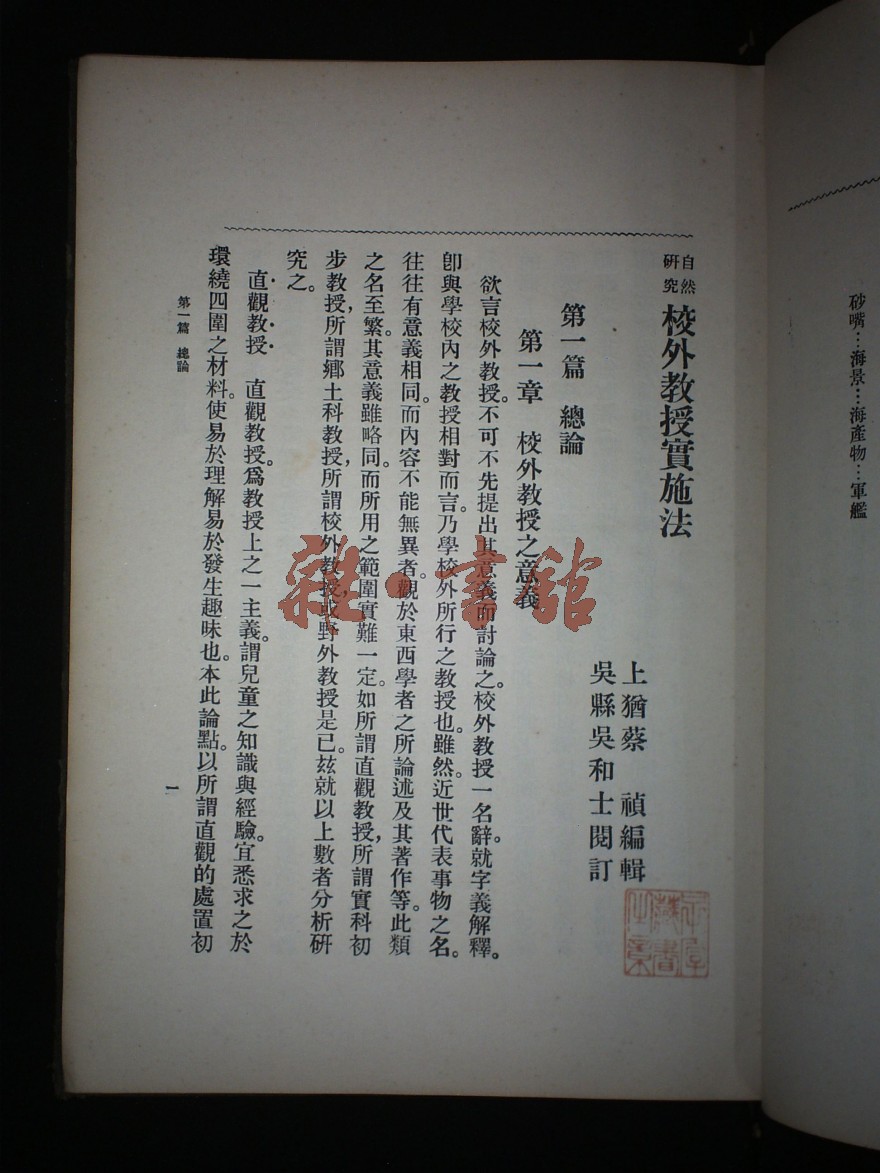 砂嘴…海景…海產物…軍艦
自然研究 校外教授實施法
上猶蔡 禎編輯
吳縣吳和士閱訂
第一篇 總論
第一章 校外教授之意義
欲言校外教授。不可不先提出其意義而討論之。校外教授一名辭。就字義解釋。
卽與學校內之教授相對而言。乃學校外所行之教授也。雖然。近世代表事物之名。
往往有意義相同。而內容不能無異者。觀於東西學者之所論述及其著作等。此類
之名至繁。其意義雖略同。而所用之範圍實難一定。如所謂直觀教授,所謂實科初
步教授,所謂鄉土科教授,所謂校外教授,或野外教授是已。玆就以上數者分析硏
究之。
直觀教授 直觀教授。爲教授上之一主義。謂兒童之知識與經驗。宜悉求之於
環繞四圍之材料。使易於理解易於發生趣味也。本此論點。以所謂直觀的處置初
第一篇 總論
一
雜·書館